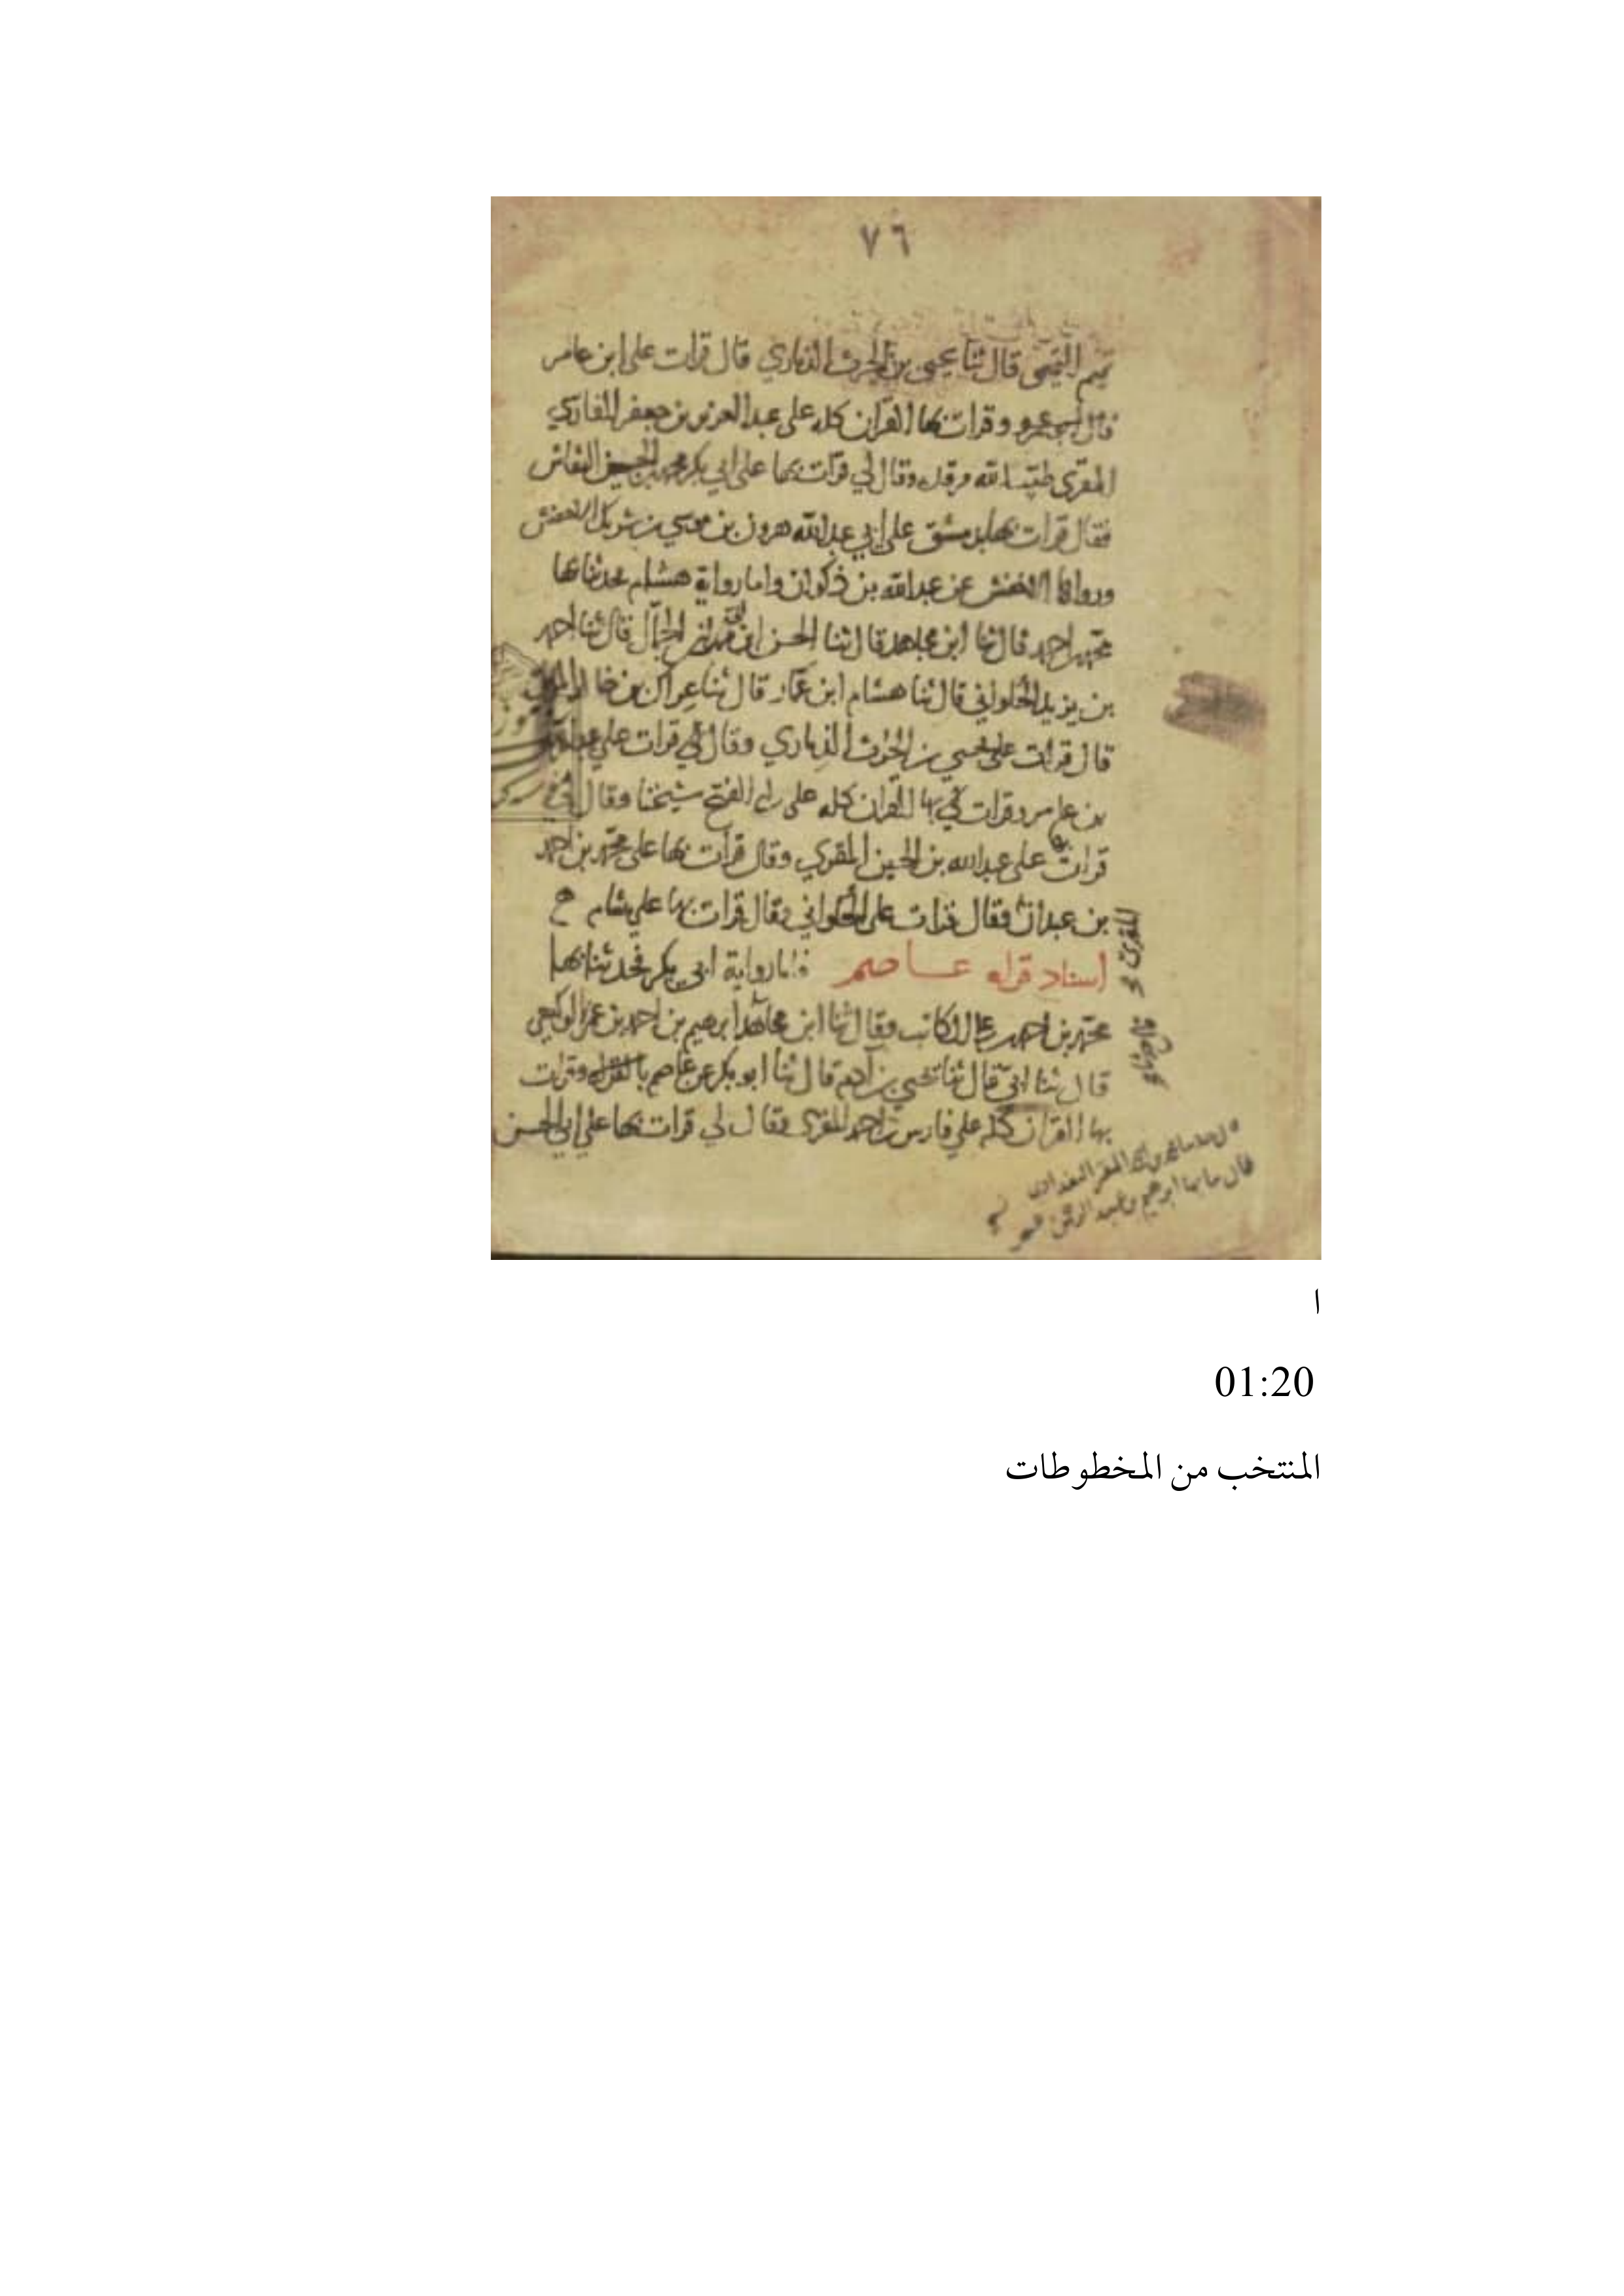 ٧٦
تميم التميمي قال ثنا يحيى بن الحرث الذماري قال قرات على ابن عامر
قال ابو عمرو وقرات بها القرآن كله على عبد العزيز بن جعفر الفارسي
المقري وقال لي قرات بها على ابي بكر محمد بن الحسن النقاش
فقال قرات بها بدمشق على ابي عبد الله هرون بن موسى بن شريك الاخفش
ورواها الاخفش عن عبد الله بن ذكوان واما رواية هشام فحدثنا بها
محمد بن احمد قال ثنا ابن مجاهد قال ثنا الحسن ابن ابي مهران الجمال قال ثنا احمد
بن يزيد الحلواني قال ثنا هشام ابن عمار قال ثنا عراك بن خالد المري
قال قرات على يحيى بن الحرث الذماري وقال لي قرات على عبد الله
بن عامر وقرات بها القران كله على ابي الفتح شيخنا وقال لي
قرات بها على عبد الله بن الحسين المقري وقال قرات بها على محمد بن احمد
بن عبدان فقال قرات على الحلواني وقال قرات بها على هشام
اسناد قراه عاصم فاما رواية ابي بكر فحدثنا بها
محمد بن احمد بن علي الكاتب وقال ثنا ابن مجاهد ابرهيم بن احمد بن عمر الوكيعي
قال ثنا ابي قال ثنا يحيى بن آدم قال ثنا ابو بكر عن عاصم وقرات
بها القران كله على فارس بن احمد المقري وقال لي قرات بها على ابي الحسن
المقري
البغدادي
قال ابرهيم بن عبد الرحمن
ا
01:20
المنتخب من المخطوطات